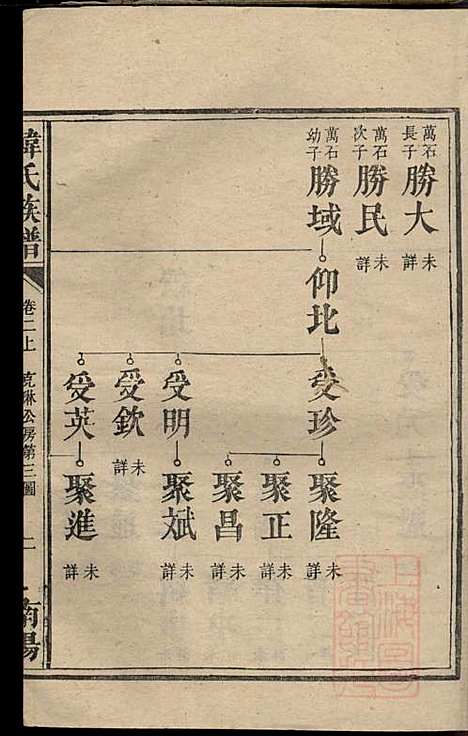 萬石長子勝大 未詳
萬石次子勝民 未詳
萬石幼子勝域
仰北
受珍
聚隆 未詳
聚正 未詳
聚昌 未詳
受明
聚斌 未詳
受欽 未詳
受英
聚進 未詳
韓氏族譜
卷二上
克琳公房第三圖
二
南陽